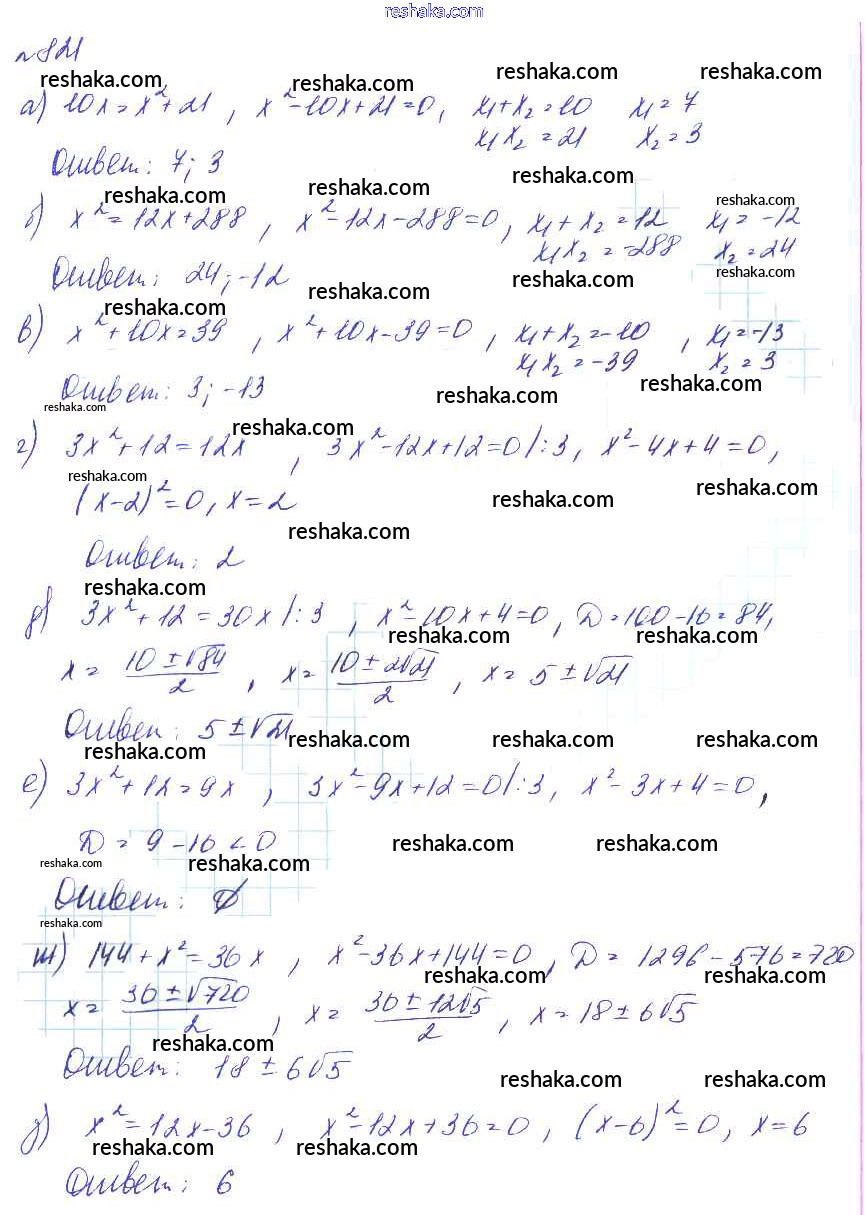 reshaka.com
№821
reshaka.com reshaka.com reshaka.com reshaka.com
а) 10x = x² + 21 , x² - 10x + 21 = 0, x₁ + x₂ = 10 x₁ = 7
x₁x₂ = 21 x₂ = 3
Ответ: 7; 3
reshaka.com reshaka.com reshaka.com reshaka.com
б) x² = 12x + 288 , x² - 12x - 288 = 0, x₁ + x₂ = 12 x₁ = -12
x₁x₂ = -288 x₂ = 24
Ответ: 24; -12
reshaka.com reshaka.com reshaka.com reshaka.com
в) x² + 10x = 39 , x² + 10x - 39 = 0 , x₁ + x₂ = -10 , x₁ = -13
x₁x₂ = -39 x₂ = 3
Ответ: 3; -13
reshaka.com reshaka.com reshaka.com reshaka.com
г) 3x² + 12 = 12x , 3x² - 12x + 12 = 0 /:3, x² - 4x + 4 = 0,
reshaka.com reshaka.com reshaka.com
(x-2)² = 0, x = 2
reshaka.com
Ответ: 2
reshaka.com
д) 3x² + 12 = 30x /:3 , x² - 10x + 4 = 0, D = 100 - 16 = 84,
reshaka.com reshaka.com
x = (10 ± √84)/2 , x = (10 ± 2√21)/2 , x = 5 ± √21
Ответ: 5 ± √21
reshaka.com reshaka.com reshaka.com reshaka.com
е) 3x² + 12 = 9x , 3x² - 9x + 12 = 0 /:3, x² - 3x + 4 = 0,
D = 9 - 16 < 0
reshaka.com reshaka.com reshaka.com reshaka.com
Ответ: ∅
reshaka.com
ж) 144 + x² = 36x , x² - 36x + 144 = 0, D = 1296 - 576 = 720
reshaka.com reshaka.com
x = (36 ± √720)/2 , x = (36 ± 12√5)/2 , x = 18 ± 6√5
reshaka.com
Ответ: 18 ± 6√5
reshaka.com reshaka.com
з) x² = 12x - 36 , x² - 12x + 36 = 0, (x-6)² = 0, x = 6
reshaka.com reshaka.com reshaka.com
Ответ: 6